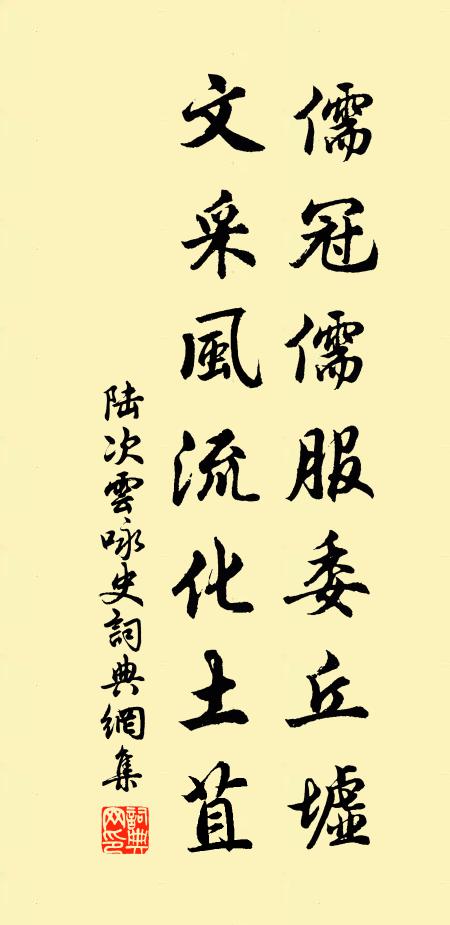 儒冠儒服委丘墟
文采風流化土苴
陆次雲咏史詞典網集
詞典网印